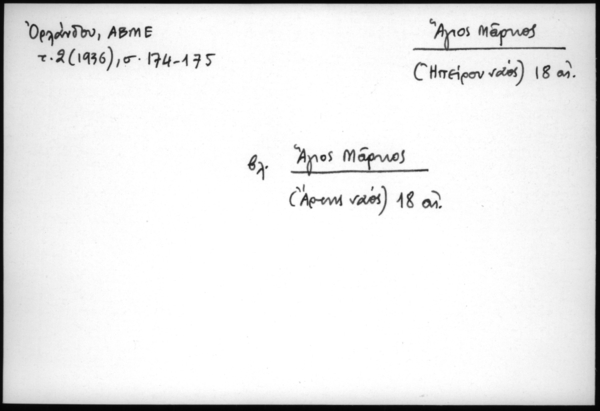 Ὀρλάνδου, ΑΒΜΕ
τ. 2 (1936), σ. 174-175
Ἅγιος Μᾶρκος
(Ἠπείρου ναός) 18 αἰ.
βλ. Ἅγιος Μᾶρκος
(Ἄρτης ναός) 18 αἰ.